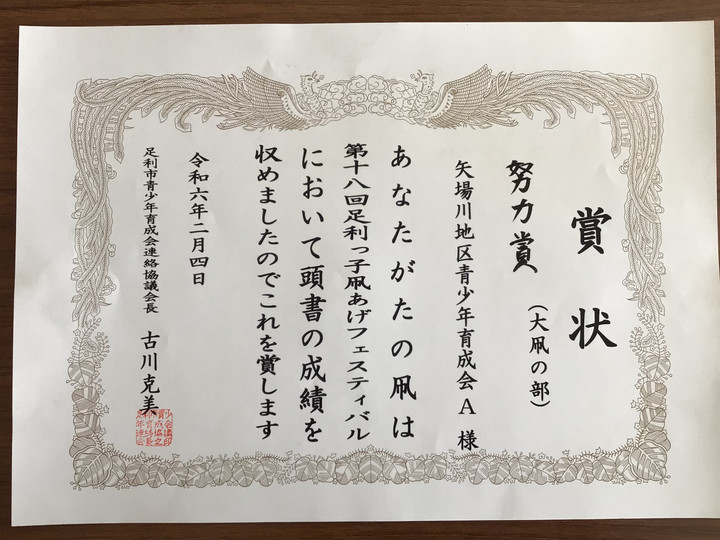 賞状
努力賞
(大凧の部)
矢場川地区青少年育成会A 様
あなたがたの凧は
第十八回足利っ子凧あげフェスティバル
において頭書の成績を
収めましたのでこれを賞します
令和六年二月四日
足利市青少年育成会連絡協議会長 古川克美